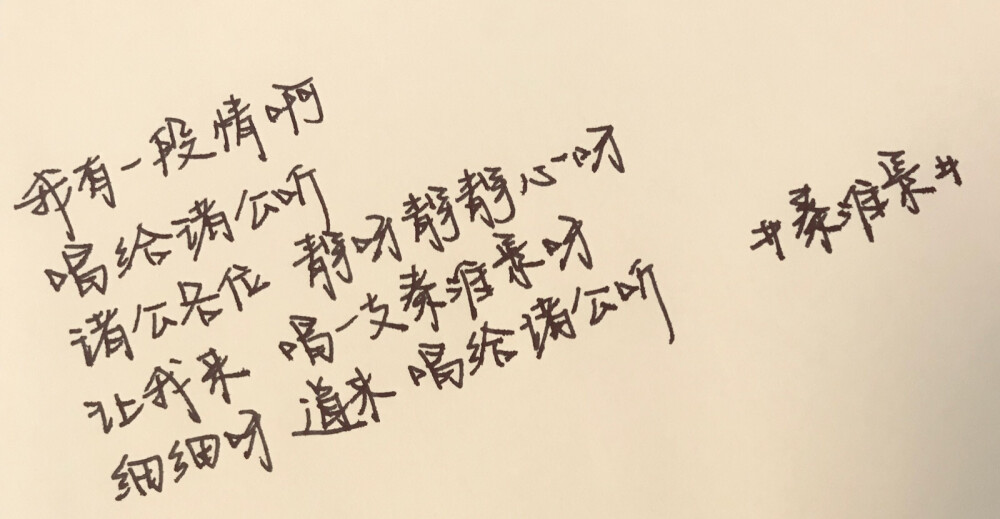 我有一段情啊
唱给诸公听
诸公各位 静呀静静心呀
让我来 唱一支秦淮景呀
细细呀 道来 唱给诸公听
#秦淮景#